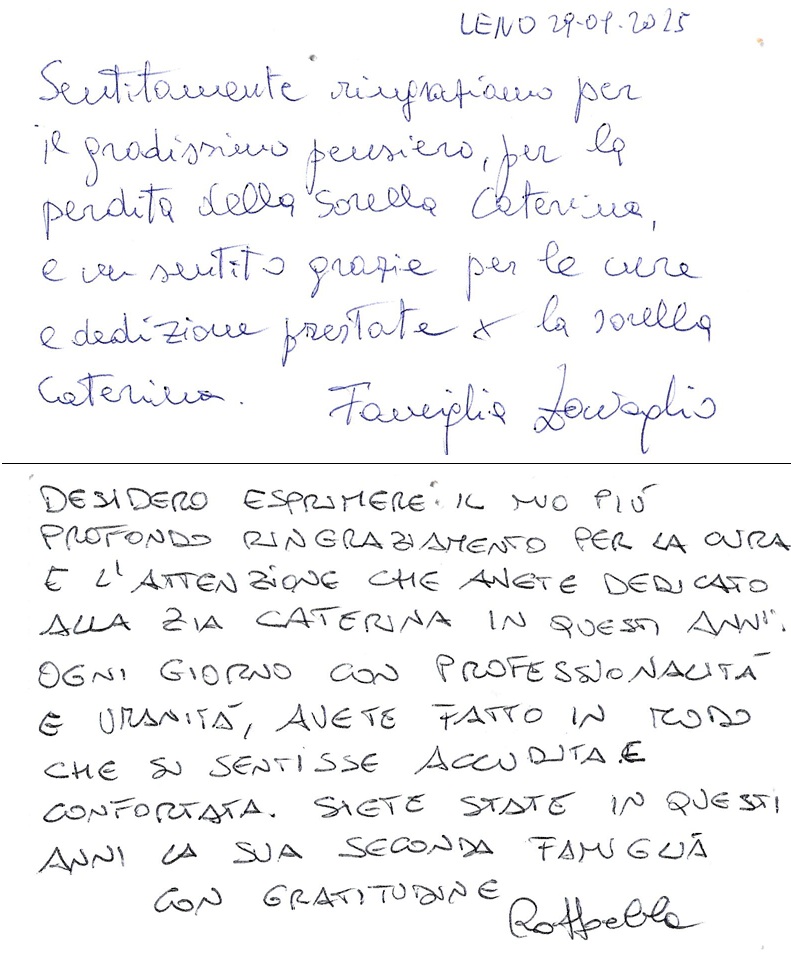 LENO 29-09-2025
Sentitamente ringraziamo per
il graditissimo pensiero, per la
perdita della sorella Caterina,
e un sentito grazie per le cure
e dedizione prestate x la sorella
Caterina. Famiglia
DESIDERO ESPRIMERE IL MIO PIÙ
PROFONDO RINGRAZIAMENTO PER LA CURA
E L'ATTENZIONE CHE AVETE DEDICATO
ALLA ZIA CATERINA IN QUESTI ANNI.
OGNI GIORNO CON PROFESSIONALITÀ
E UMANITÀ, AVETE FATTO IN MODO
CHE SI SENTISSE ACCUDITA E
CONFORTATA. SIETE STATE IN QUESTI
ANNI LA SUA SECONDA FAMIGLIA
CON GRATITUDINE
Raffaella